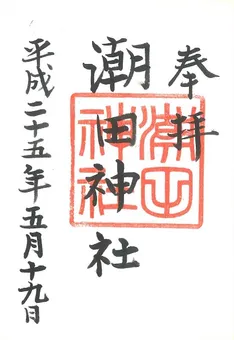 奉拝
潮田神社
潮田神社
平成二十五年五月十九日